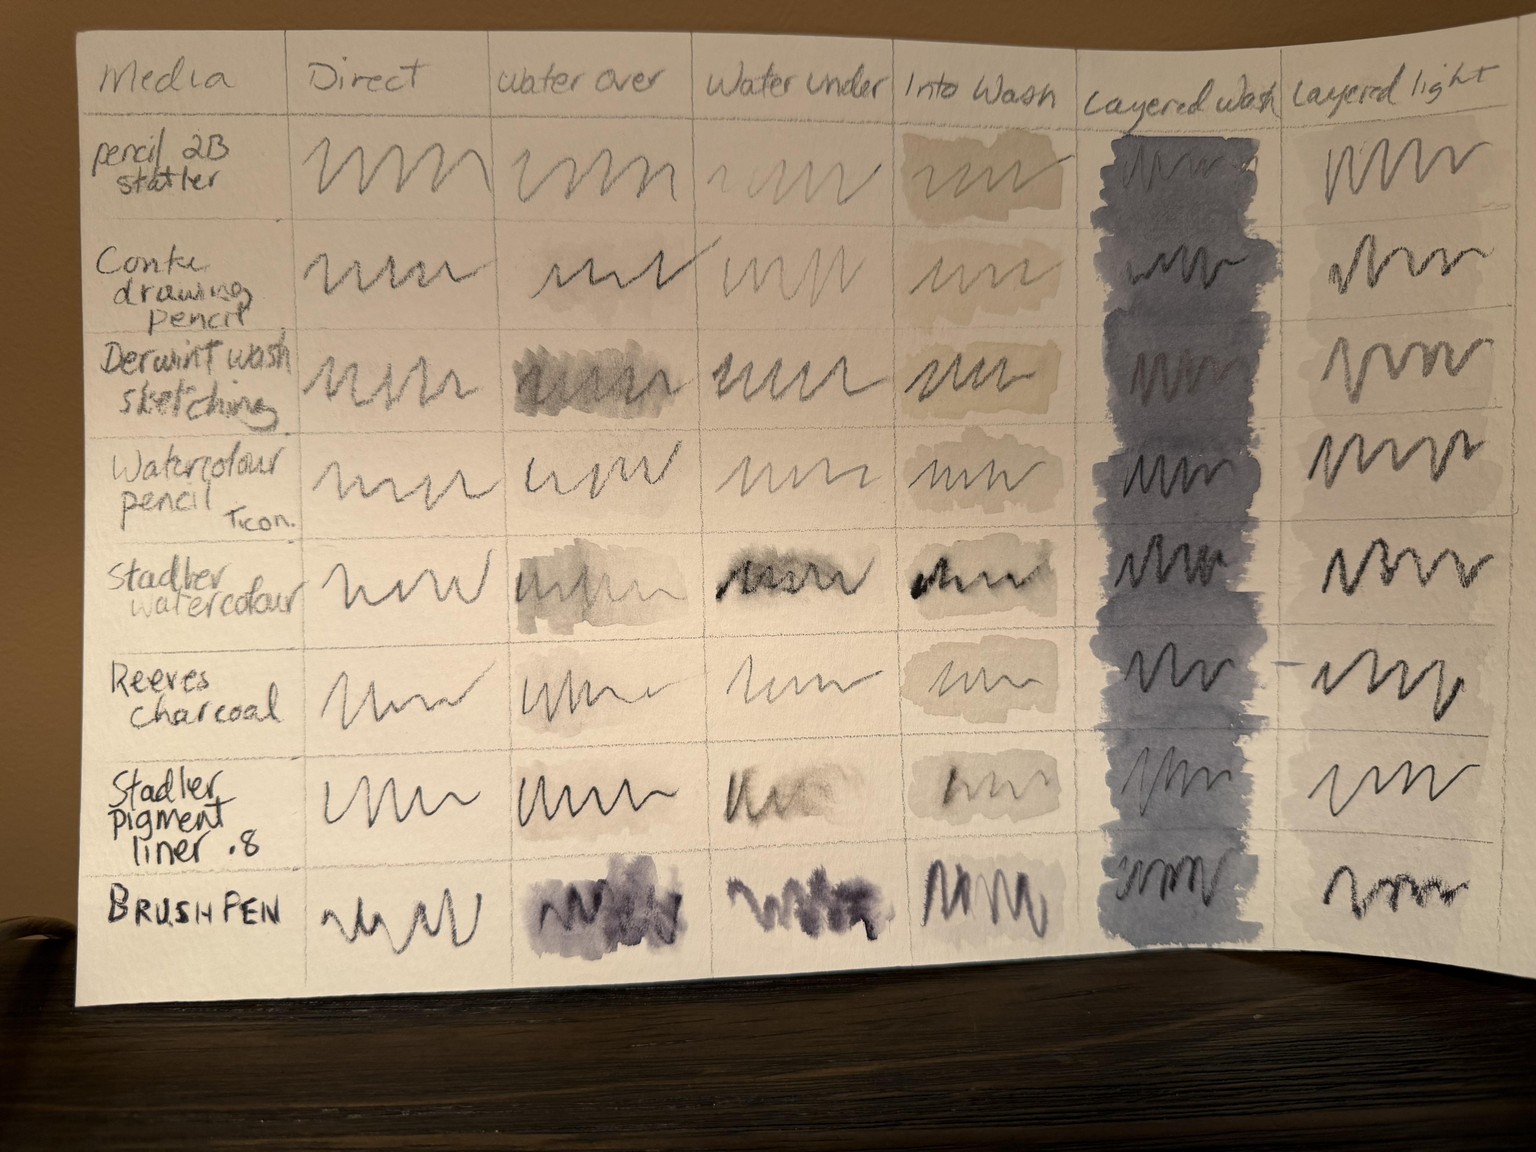 Media Direct Water over Water under Into Wash Layered Wash Layered light
pencil 2B
statler
Conte
drawing
pencil
Derwint wash
sketching
Watercolour
pencil
Ticon.
Stadler
watercolour
Reeves
charcoal
Stadler
pigment
liner .8
BRUSH PEN